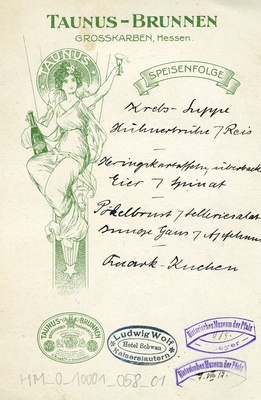 TAUNUS-BRUNNEN
GROSSKARBEN, Hessen.
TAUNUS
SPEISENFOLGE
Krebs-Suppe
Hühnerbrühe / Reis
Heringskartoffeln, überback
Eier / Spinat
Pökelbrust / Selleriesalat
Junge Gans / Apfelmus
Quark-Kuchen
TAUNUS BRUNNEN
Ludwig Wolf
Hotel Schwan
Kaiserslautern
Historisches Museum der Pfalz
Historisches Museum der Pfalz
HM_0_10001_058_01